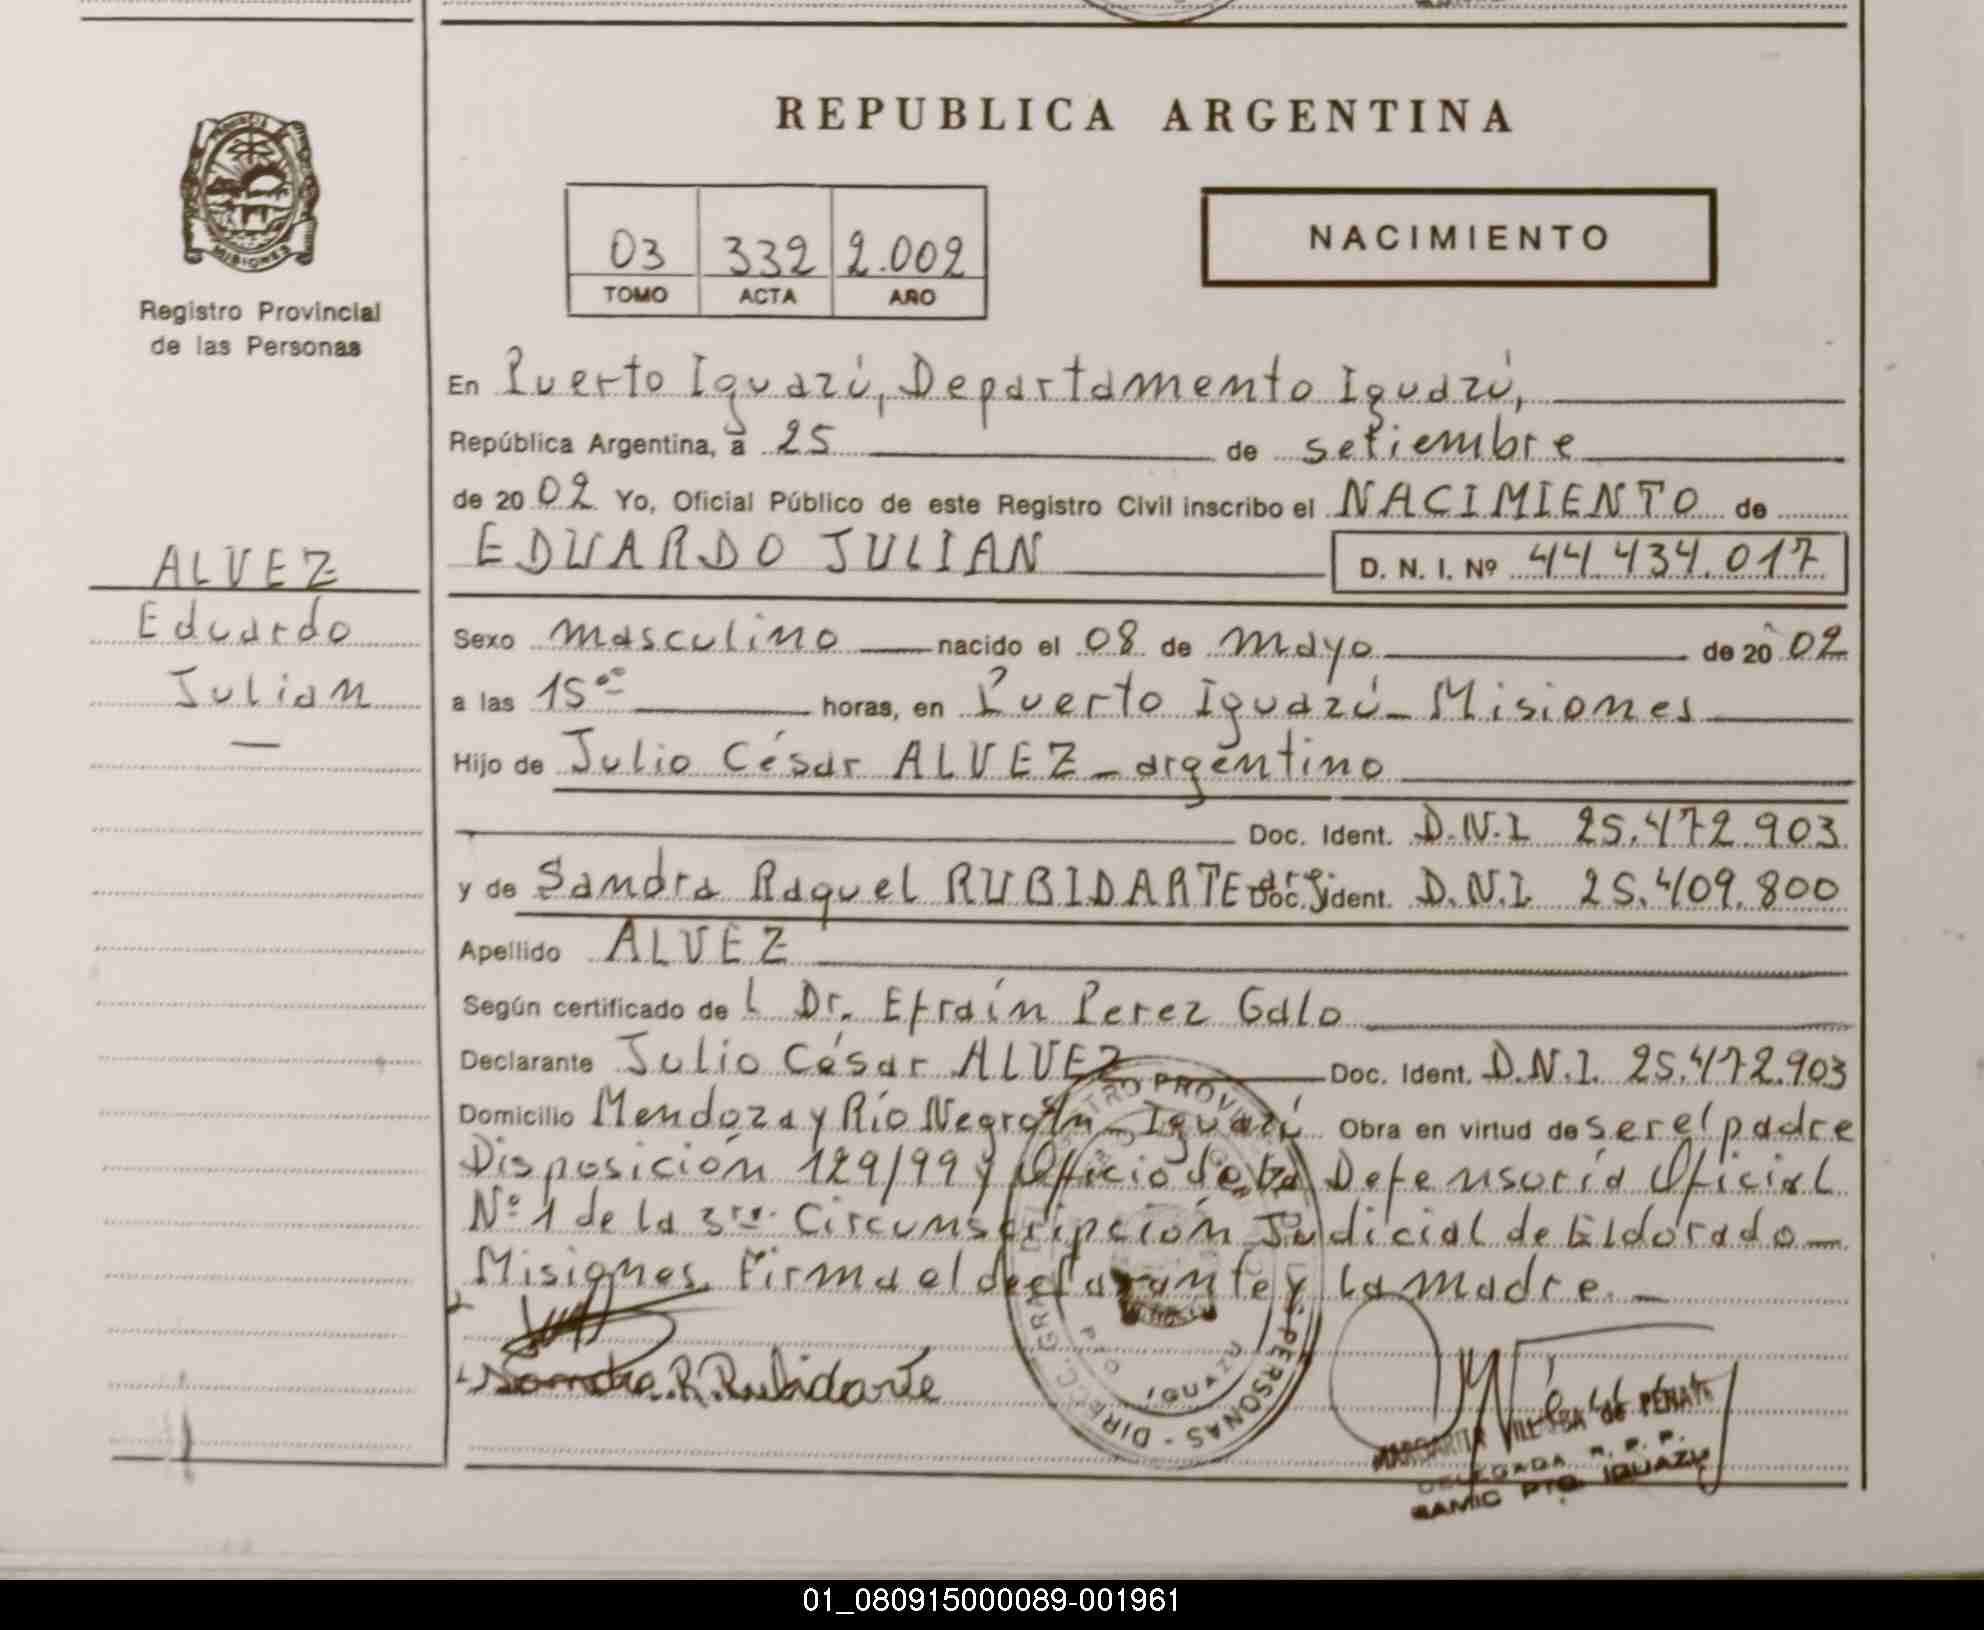 REPUBLICA ARGENTINA
PROVINCIA
MISIONES
Registro Provincial
de las Personas
03 332 2.002
TOMO ACTA AÑO
NACIMIENTO
En Puerto Iguazú, Departamento Iguazú,
República Argentina, a 25 de setiembre
de 2002 Yo, Oficial Público de este Registro Civil inscribo el NACIMIENTO de
EDUARDO JULIAN D. N. I. Nº 44.434.017
ALVEZ
Eduardo
Julian
Sexo masculino nacido el 08 de mayo de 2002
a las 15ºº horas, en Puerto Iguazú - Misiones
Hijo de Julio César ALVEZ - argentino
Doc. Ident. D.N.I. 25.472.903
y de Sandra Raquel RUBIDARTE arg. Doc. Ident. D.N.I. 25.409.800
Apellido ALVEZ
Según certificado del Dr. Efraín Perez Galo
Declarante Julio César ALVEZ Doc. Ident. D.N.I. 25.472.903
Domicilio Mendoza y Río Negro Iguazú Obra en virtud de ser el padre
Disposición 129/99 y Oficio de la Defensoría Oficial
Nº 1 de la 3ra. Circunscripción Judicial de Eldorado -
Misiones. Firma el declarante y la madre. -
Sandra.R.Rubidarte
PERSONAS - DIRECC. GRAL
IGUAZU
MARGARITA VILLALBA de
DELEGADA R. P. P.
SAMIC PTO. IGUAZU
01_080915000089-001961